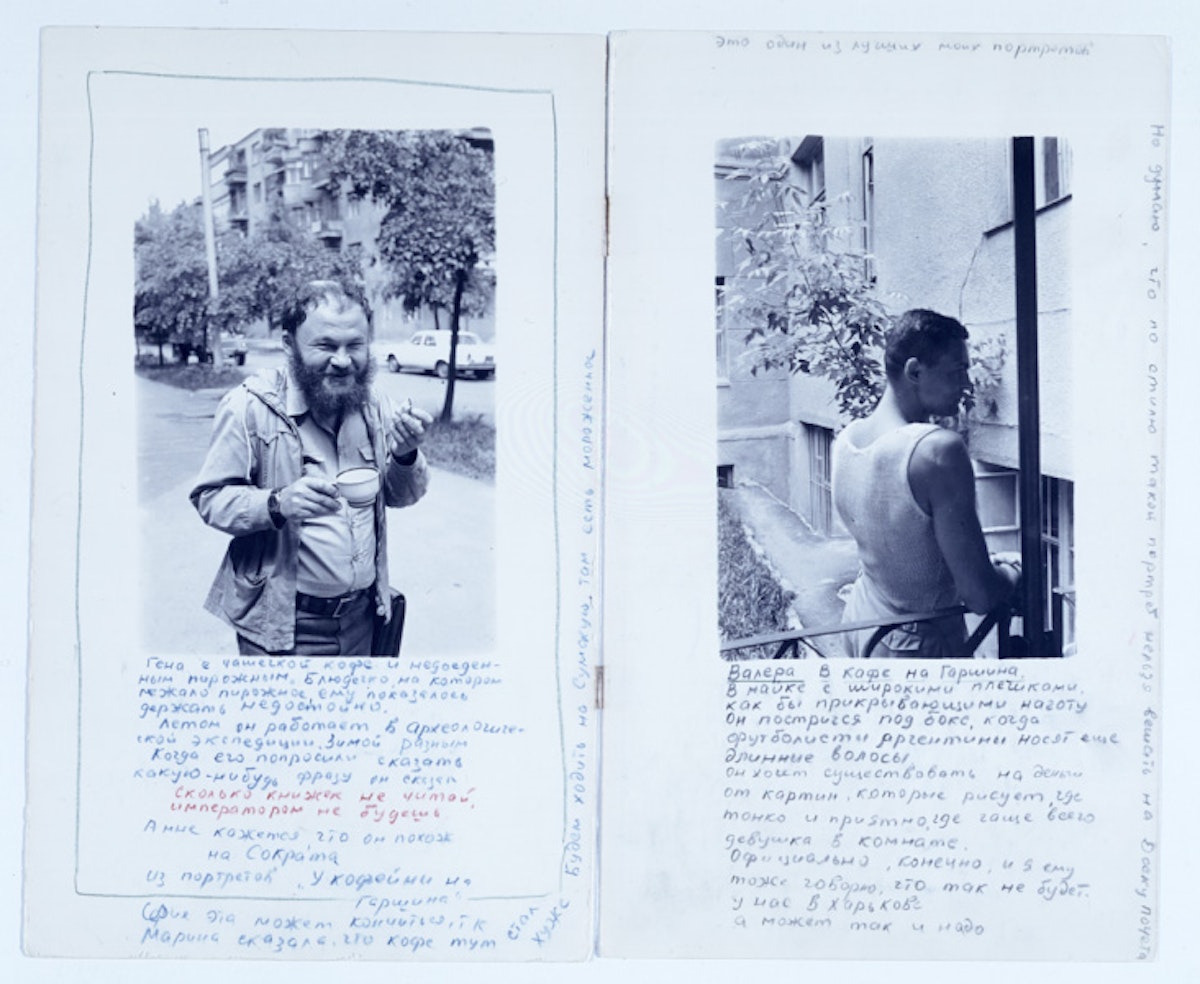 Гена с чашечкой кофе и недоеден-
ным пирожным. Блюдечко, на котором
лежало пирожное, ему показалось
держать недостойно.
Летом он работает в археологиче-
ской экспедиции. Зимой разным
Когда его попросили сказать
какую-нибудь фразу он сказал
Сколько книжек не читай,
императором не будешь.
А мне кажется что он похож
на Сократа
из портретов „У кофейни на
Гаршина"
Серия эта может кончиться, т к
Марина сказала, что кофе тут стал
хуже.
Будем ходить на Сумскую, там есть мороженное
Это один из лучших моих портретов
Валера В кафе на Гаршина,
В майке с широкими плечиками,
как бы прикрывающими наготу
Он постригся под бокс, когда
футболисты Аргентины носят еще
длинные волосы
Он хочет существовать на деньги
от картин, которые рисует, где
тонко и приятно, где чаще всего
девушка в комнате.
Официально, конечно, и я ему
тоже говорю, что так не будет.
у нас в Харькове
а может так и надо
Но думаю, что по стилю такой портрет нельзя вешать на Доску почета